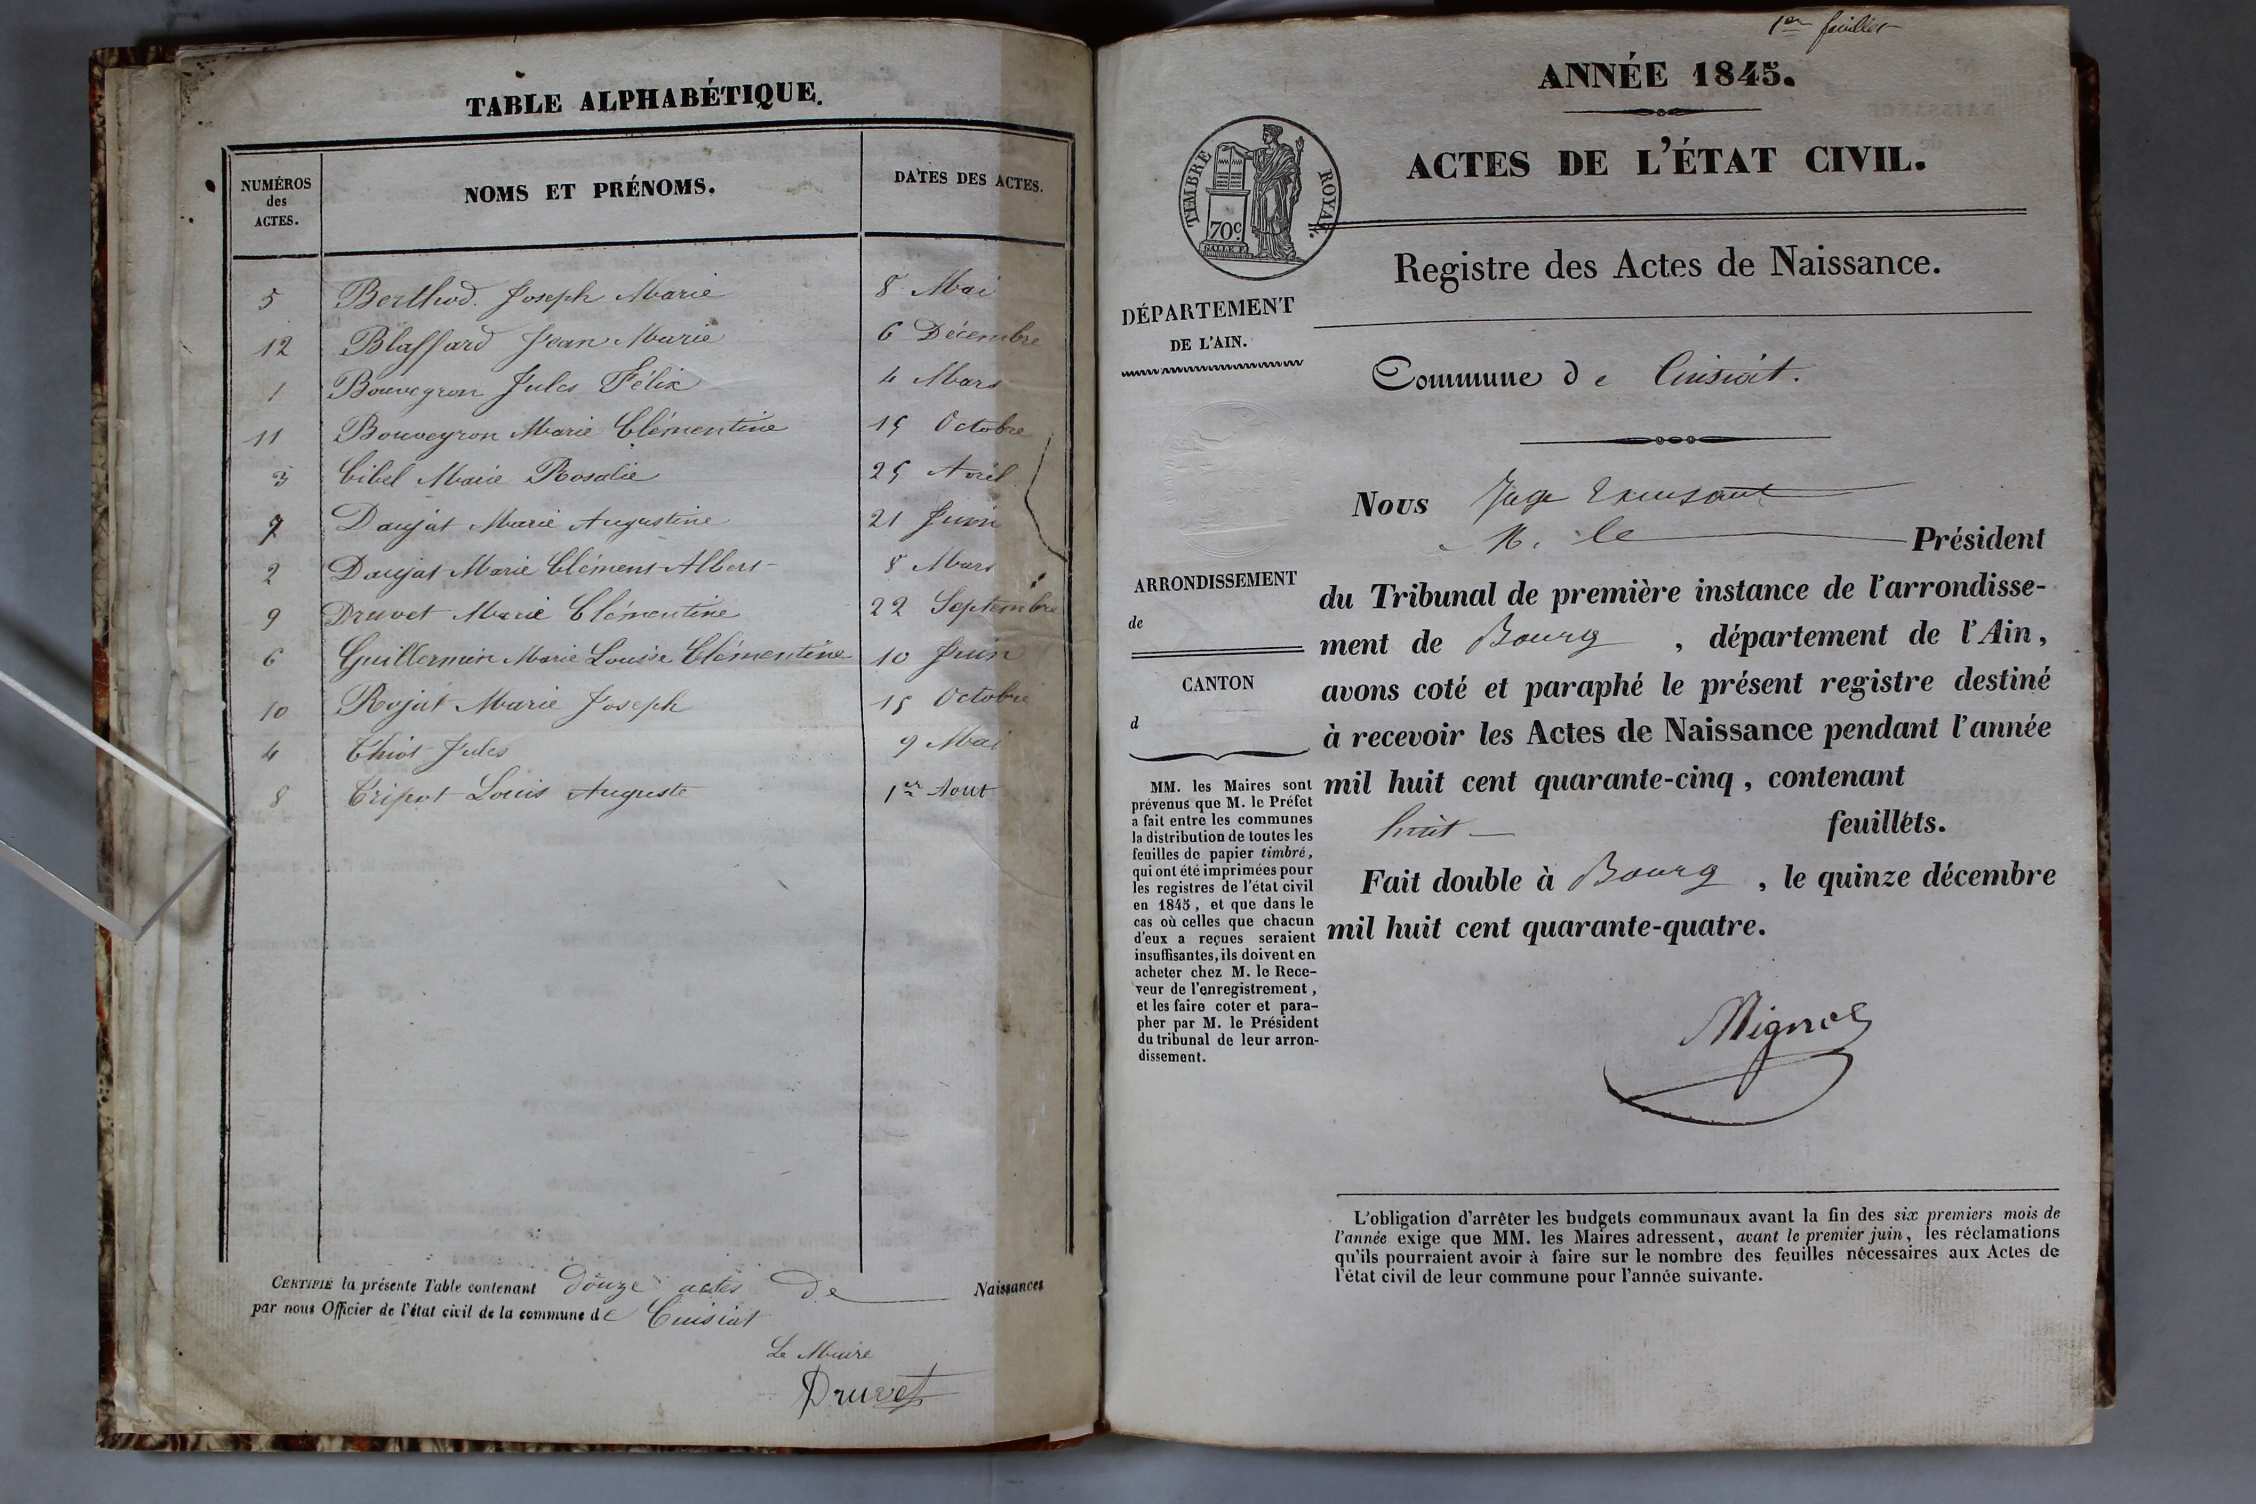 TABLE ALPHABÉTIQUE.
NUMÉROS
des
ACTES.
NOMS ET PRÉNOMS.
DATES DES ACTES.
5 Berthod Joseph Marie 8 Mai
12 Blaffard Jean Marie 6 Décembre
1 Bouveyron Jules Félix 4 Mars
11 Bouveyron Marie Clémentine 15 Octobre
3 Cibel Marie Rosalie 25 Avril
7 Daujat Marie Augustine 21 Juin
2 Daujat Marie Clément Albert 8 Mars
9 Druvet Marie Clémentine 22 Septembre
6 Guillermin Marie Louise Clémentine 10 Juin
10 Rojat Marie Joseph 15 Octobre
4 Thiot Jules 9 Mai
8 Tripot Louis Auguste 1er Aout
CERTIFIÉ la présente Table contenant douze actes De Naissances
par nous Officier de l'état civil de la commune de Cuisiat
Le Maire
Druvet
1er feuillet
ANNÉE 1845.
ACTES DE L'ÉTAT CIVIL.
TIMBRE ROYAL.
70c.
Registre des Actes de Naissance.
DÉPARTEMENT
DE L'AIN.
Commune de Cuisiat.
Nous Juge
M. le Président
ARRONDISSEMENT
de
CANTON
d
du Tribunal de première instance de l'arrondisse-
ment de Bourg, département de l'Ain,
avons coté et paraphé le présent registre destiné
à recevoir les Actes de Naissance pendant l'année
mil huit cent quarante-cinq, contenant
huit feuillets.
Fait double à Bourg, le quinze décembre
mil huit cent quarante-quatre.
MM. les Maires sont
prévenus que M. le Préfet
a fait entre les communes
la distribution de toutes les
feuilles de papier timbré,
qui ont été imprimées pour
les registres de l'état civil
en 1845, et que dans le
cas où celles que chacun
d'eux a reçues seraient
insuffisantes, ils doivent en
acheter chez M. le Rece-
veur de l'enregistrement,
et les faire coter et para-
pher par M. le Président
du tribunal de leur arron-
dissement.
L'obligation d'arrêter les budgets communaux avant la fin des six premiers mois de
l'année exige que MM. les Maires adressent, avant le premier juin, les réclamations
qu'ils pourraient avoir à faire sur le nombre des feuilles nécessaires aux Actes de
l'état civil de leur commune pour l'année suivante.